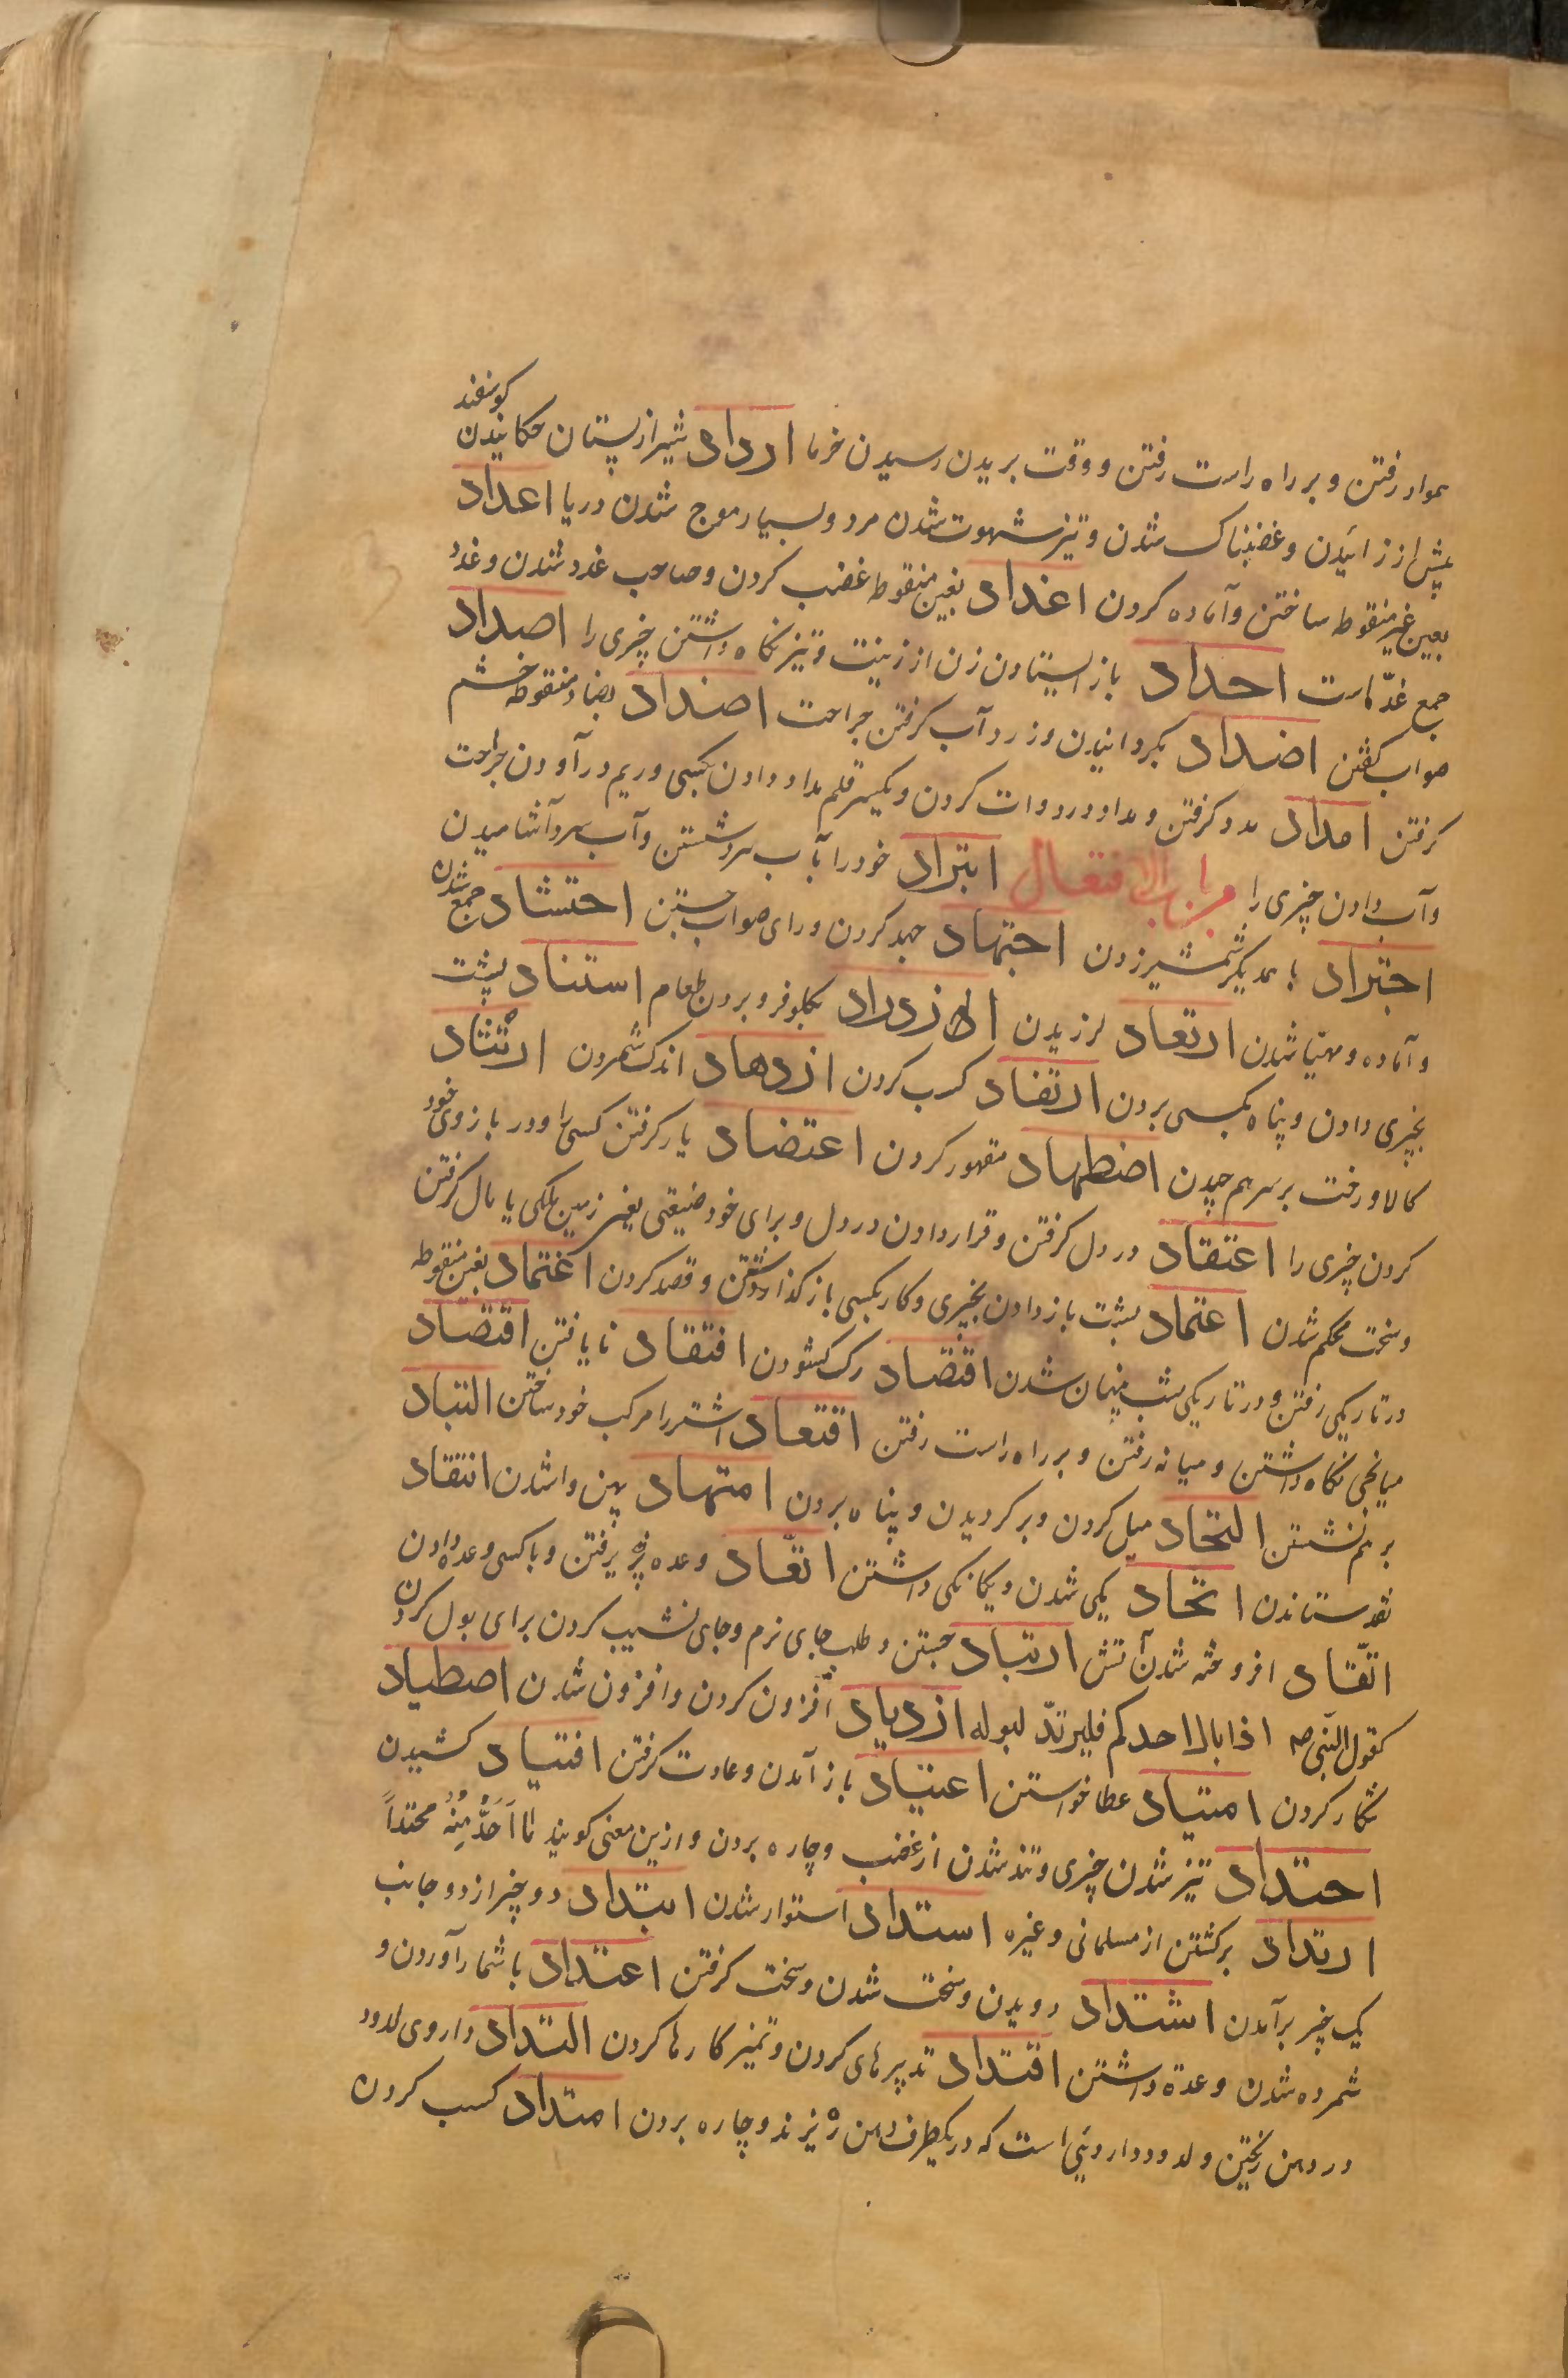 همواد رفتن و بر راه راست رفتن و وقت بریدن رسیدن خرما ارداد شیر از پستان چکانیدن کوسفند
پیش از زائیدن و غضبناک شدن و تیز شهوت شدن مرد و بسیار موج شدن دریا اعداد
بعین غیر منقوط ساختن و آماده کردن اغداد بغین منقوطه غضب کردن و صاحب غدد شدن و غدد
جمع غدّه است احداد باز ایستادن زن از زینت و تیز نکاه داشتن چیزی را اصداد
صواب کفتن اصداد بکردانیدن و زردآب کرفتن جراحت اضداد بضاد منقوطه خشم
کرفتن امداد مدد کرفتن و مداد در دوات کردن و یکسر قلم مداد دادن بکسی و ریم درآوردن جراحت
و آب دادن چیزی را من باب الافتعال ابتراد خود را بآب سرد شستن و آب سرد آشامیدن
اجتراد با یکدیکر شمشیر زدن اجتهاد جهد کردن و رای صواب جستن احتشاد جمع شدن
و آماده و مهیّا شدن ارتعاد لرزیدن ازدراد بکلو فرو بردن طعام استناد پشت
بچیزی دادن و پناه بکسی بردن ارتفاد کسب کردن ازدهاد اندک شمردن ارتثاد
کالا و رخت بر سر هم چیدن اضطهاد مقهور کردن اعتضاد یار کرفتن کسی را و در بازوی خود
کردن چیزی را اعتقاد در دل کرفتن و قرار دادن در دل و برای خود ضیعتی یعنی زمین ملکی یا مال کرفتن
و سخت محکم شدن اعتماد پشت باز دادن بچیزی و کار بکسی باز کذاشتن و قصد کردن اغتماد بغین منقوطه
در تاریکی رفتن و در تاریکی شب پنهان شدن اقتصاد رک کشودن افتقاد نا یافتن اقتصاد
میانجی نکاه داشتن و میانه رفتن و بر راه راست رفتن اقتعاد اشتر را مرکب خود ساختن التباد
بر هم نشستن التحاد میل کردن و بر کردیدن و پناه بردن امتهاد پهن وا شدن انتقاد
نقد ستاندن اتحاد یکی شدن و یکانکی داشتن اتعاد وعده پذیرفتن و با کسی وعده دادن
اتّقاد افروخته شدن آتش ارتیاد جستن و طلب جای نرم و جای نشیب کردن برای بول کردن
کقول النّبی ص اذا بال احدکم فلیرتدّ لبوله ازدیاد افزون کردن و افزون شدن اصطیاد
شکار کردن امتیاد عطا خواستن اعتیاد باز آمدن و عادت کرفتن اقتیاد کشیدن
احتداد تیز شدن چیزی و تند شدن از غضب و چاره بردن و ازین معنی کویند ما اَجِدُ مِنْهُ محتداً
ارتداد برکشتن از مسلمانی و غیره استداد استوار شدن ابتداد دو چیز از دو جانب
یک چیز برآمدن اشتداد دویدن و سخت شدن و سخت کرفتن اعتداد با شمار آوردن و
شمرده شدن و عدّه داشتن اقتداد تدبیرهای کردن و تمیز کارها کردن التداد داروی لدود
در دهن ریختن و لدود داروئی است که در یکطرف دهن ریزند و چاره بردن امتداد کسب کردن